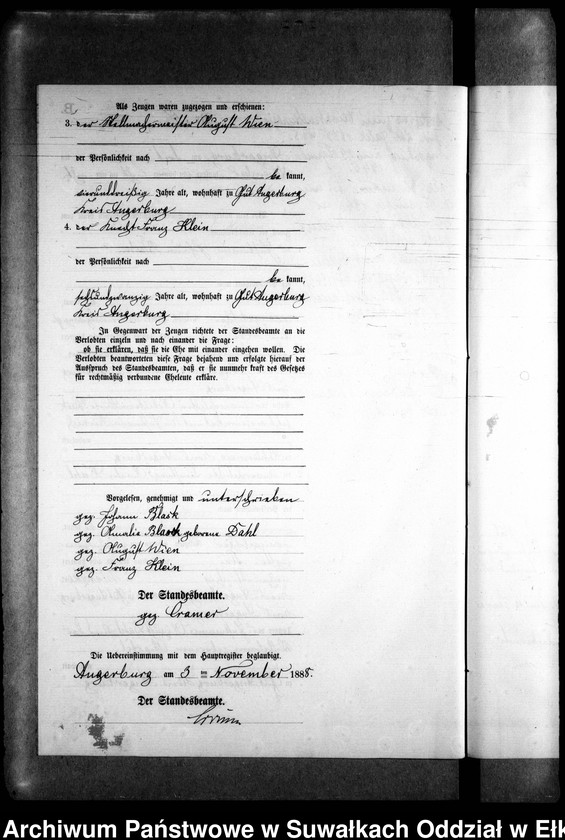 Als Zeugen waren zugezogen und erschienen:
3. der Stellmachermeister August Wien
der Persönlichkeit nach
be kannt,
vierunddreißig Jahre alt, wohnhaft zu Gut Angerburg
Kreis Angerburg
4. der Knecht Franz Klein
der Persönlichkeit nach
be kannt,
sechsundzwanzig Jahre alt, wohnhaft zu Gut Angerburg
Kreis Angerburg
In Gegenwart der Zeugen richtete der Standesbeamte an die
Verlobten einzeln und nach einander die Frage:
ob sie erklären, daß sie die Ehe mit einander eingehen wollen. Die
Verlobten beantworteten diese Frage bejahend und erfolgte hierauf der
Ausspruch des Standesbeamten, daß er sie nunmehr kraft des Gesetzes
für rechtmäßig verbundene Eheleute erkläre.
Vorgelesen, genehmigt und unterschrieben
gez. Johann Blask
gez. Amalie Blask geborene Dahl
gez. August Wien
gez. Franz Klein
Der Standesbeamte.
gez. Cramer
Die Uebereinstimmung mit dem Hauptregister beglaubigt.
Angerburg am 3 ten November 1885.
Der Standesbeamte.
Archiwum Państwowe w Suwałkach Oddział w Ełk